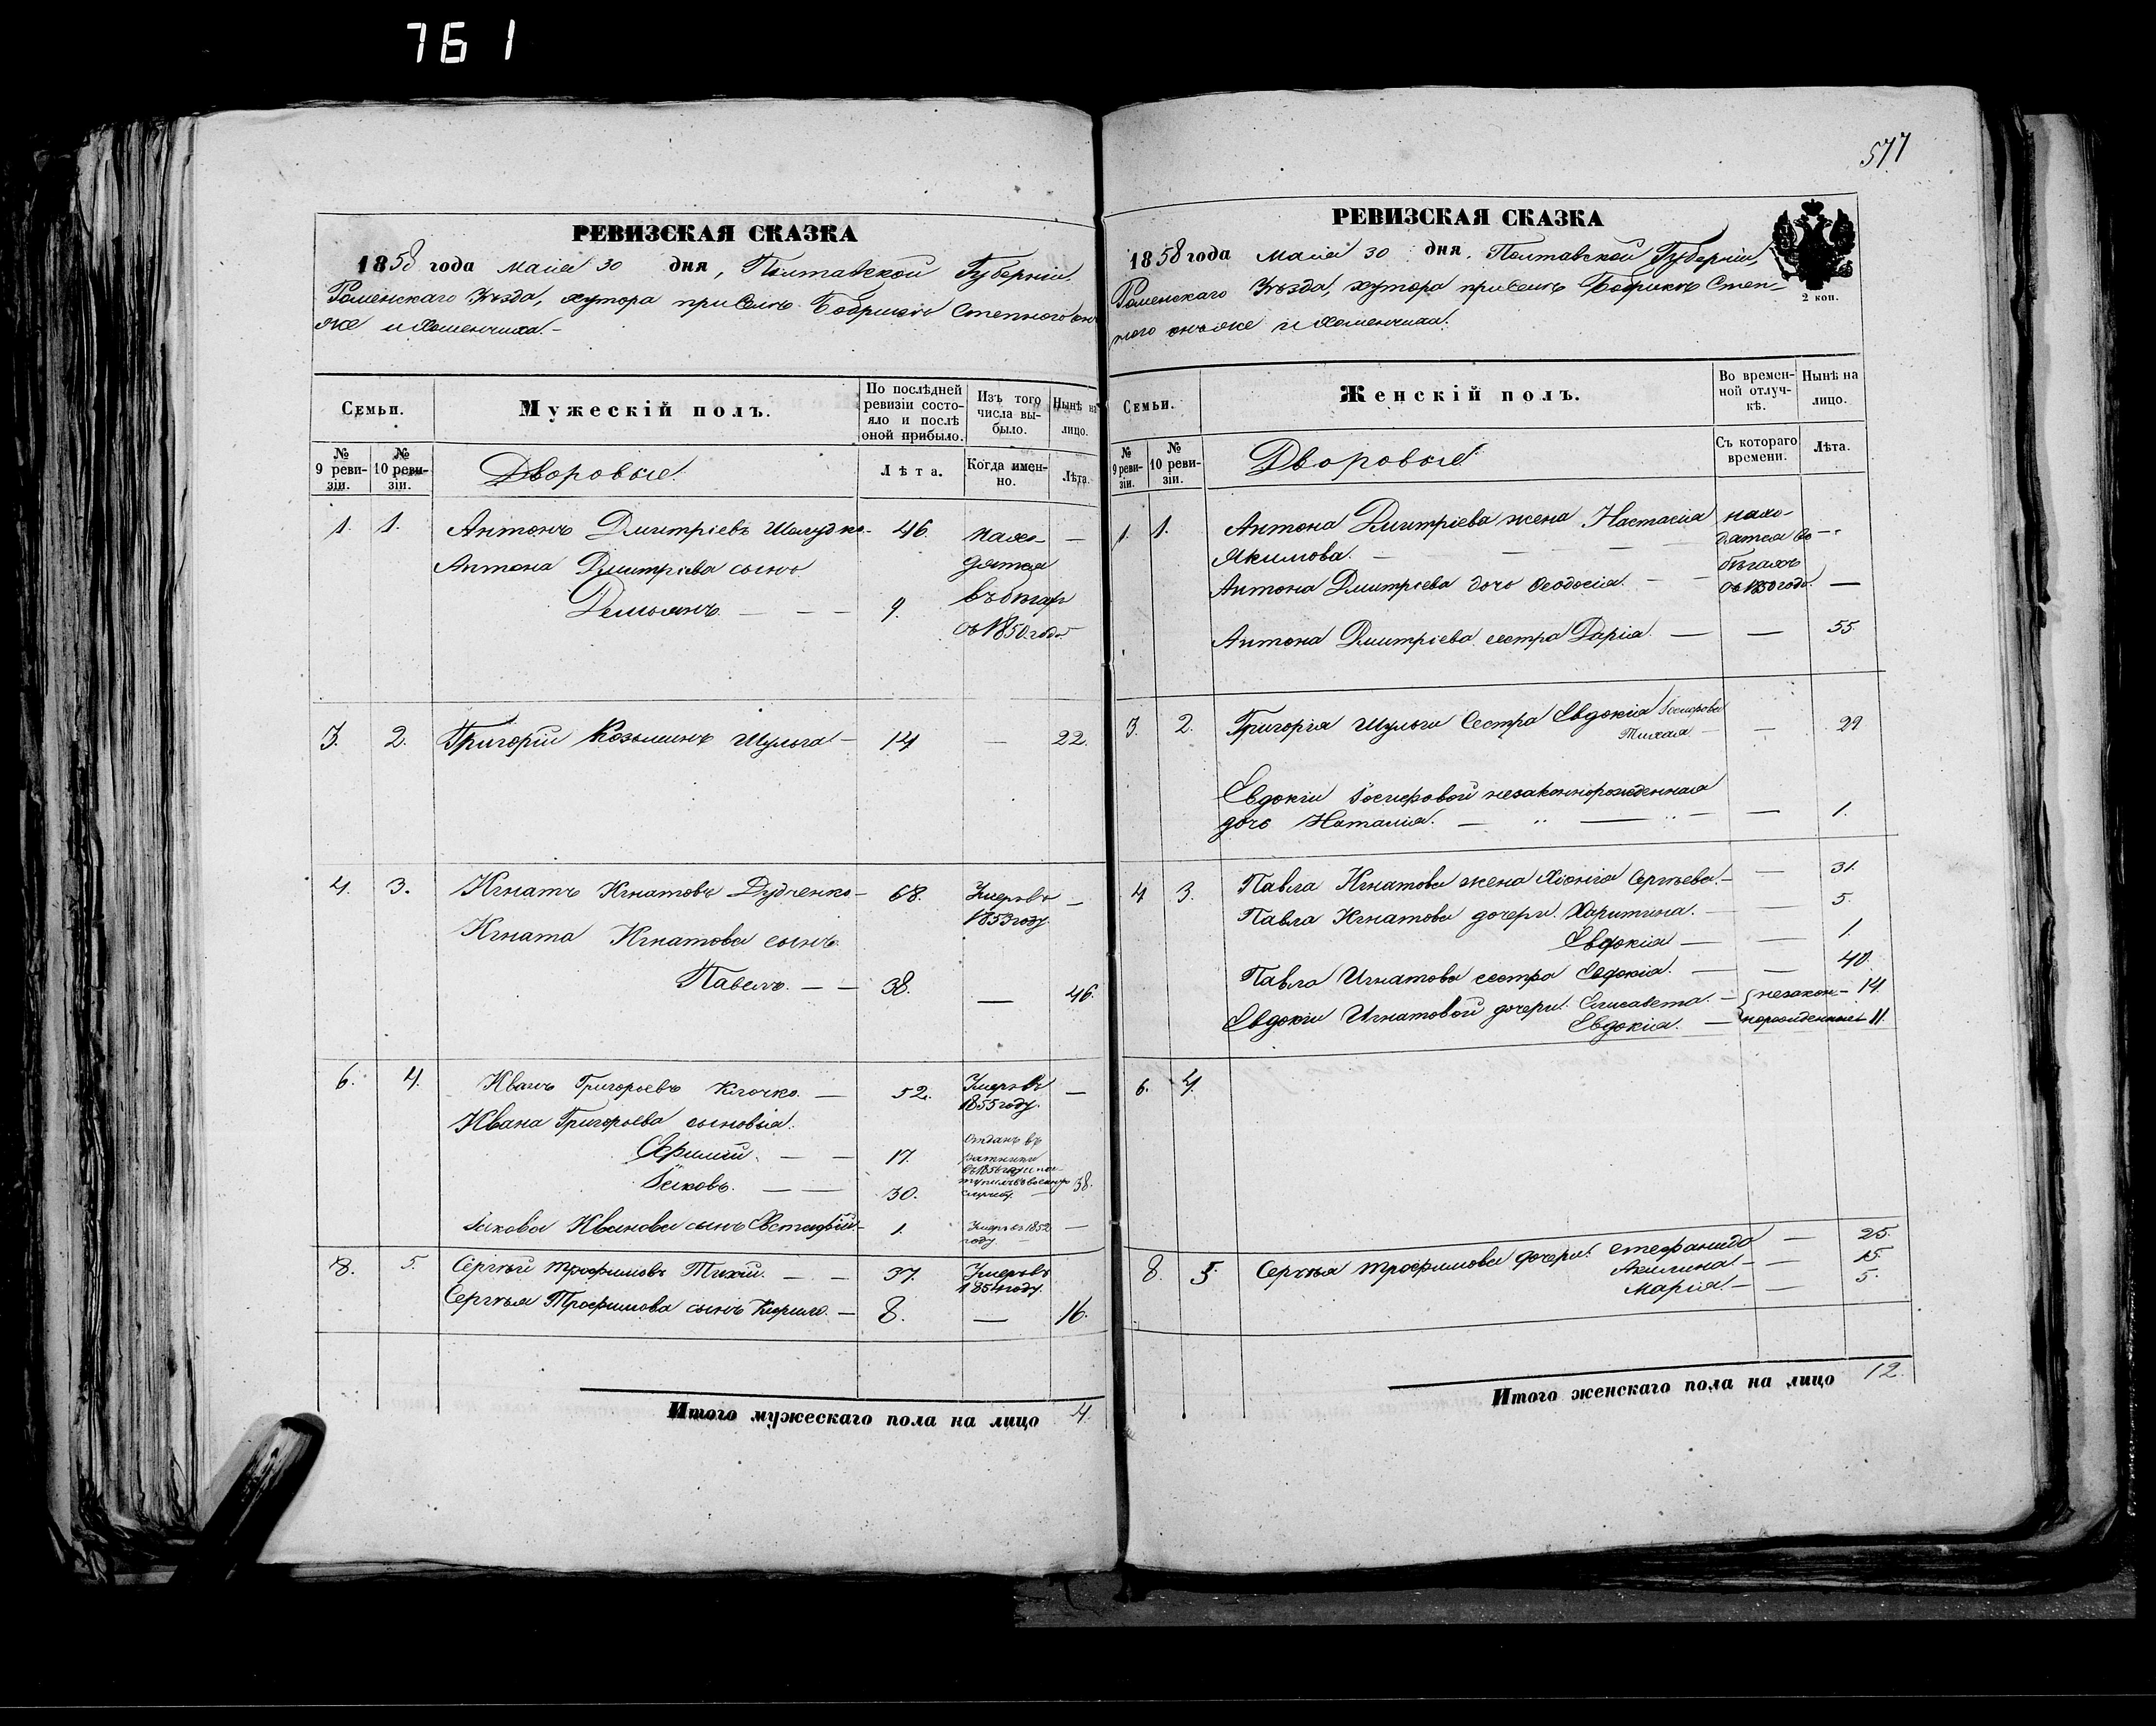 761
577
РЕВИЗСКАЯ СКАЗКА
1858 года маія 30 дня, Полтавской Губерніи,
Роменскаго Уѣзда, хутора при Селѣ Бобрикѣ Степного онъ
же и Хоменчиха.
Семьи.
Мужескій полъ.
По послѣдней ревизіи состояло и послѣ оной прибыло.
Изъ того числа выбыло.
Нынѣ на лицо.
№ 9 ревизіи.
№ 10 ревизіи.
Дворовые.
Лѣта.
Когда именно.
Лѣта.
1. 1. Антонъ Дмитріевъ Шелудко 46. нахо- —
Антона Дмитріева сынъ дятся
Демьянъ — — — 9. въ бѣгах
съ 1850 года
3. 2. Григорій Козьминъ Шульга — 14 — 22.
4. 3. Игнатъ Игнатовъ Дудченко — 68. Умеръ въ —
1853 году.
Игната Игнатова сынъ
Павелъ. — — 38. — 46.
6. 4. Иванъ Григорьевъ Клочко. — 52. Умеръ въ —
1855 году.
Ивана Григорьева сыновья.
Ефимій. — — 17. отданъ въ ратники
Іяковъ. — — 30. службу. — 38.
Іакова Иванова сынъ Евстафій — 1. Умеръ въ 1852 —
году.
8. 5. Сергѣй Трофимовъ Тихій. — — 37. Умеръ въ
1851 году.
Сергѣя Трофимова сынъ Кирило. — 8. — 16.
Итого мужескаго пола на лицо 4.
РЕВИЗСКАЯ СКАЗКА
1858 года Маія 30 дня, Полтавской Губерніи,
Роменскаго Уѣзда, хутора при Селѣ Бобрикѣ Степ-
ного онъ же и Хоменчиха.
2 коп.
Семьи.
Женскій полъ.
Во временной отлучкѣ.
Нынѣ на лицо.
№ 9 ревизіи.
№ 10 ревизіи.
Дворовые.
Съ котораго времени.
Лѣта.
1. 1. Антона Дмитріева жена Настасія нахо-
Якимова. — — — — дятся въ —
бѣгахъ
Антона Дмитріева дочь Ѳеодосія. — — съ 1850 года. —
Антона Дмитріева сестра Дарія. — — 55.
3. 2. Григорія Шульги Сестра Евдокія Іосифова
Тихая. — — 29
Евдокіи Іосифовой незаконнорожденная
дочь Наталія. — „ — „ — — 1.
4 3. Павла Игнатова жена Хіонія Сергѣева. — — 31.
Павла Игнатова дочери. Харитина. — — 5.
Евдокія — — 1
Павла Игнатова сестра Евдокія. — — 40.
Евдокіи Игнатовой дочери. Елисавета. — незакон- 14.
Евдокія. — норожденныя 11.
6. 4.
8. 5. Сергѣя Трофимова дочери. Стефанида — 25.
Акилина — — 15.
Марія. — — 5.
Итого женскаго пола на лицо 12.